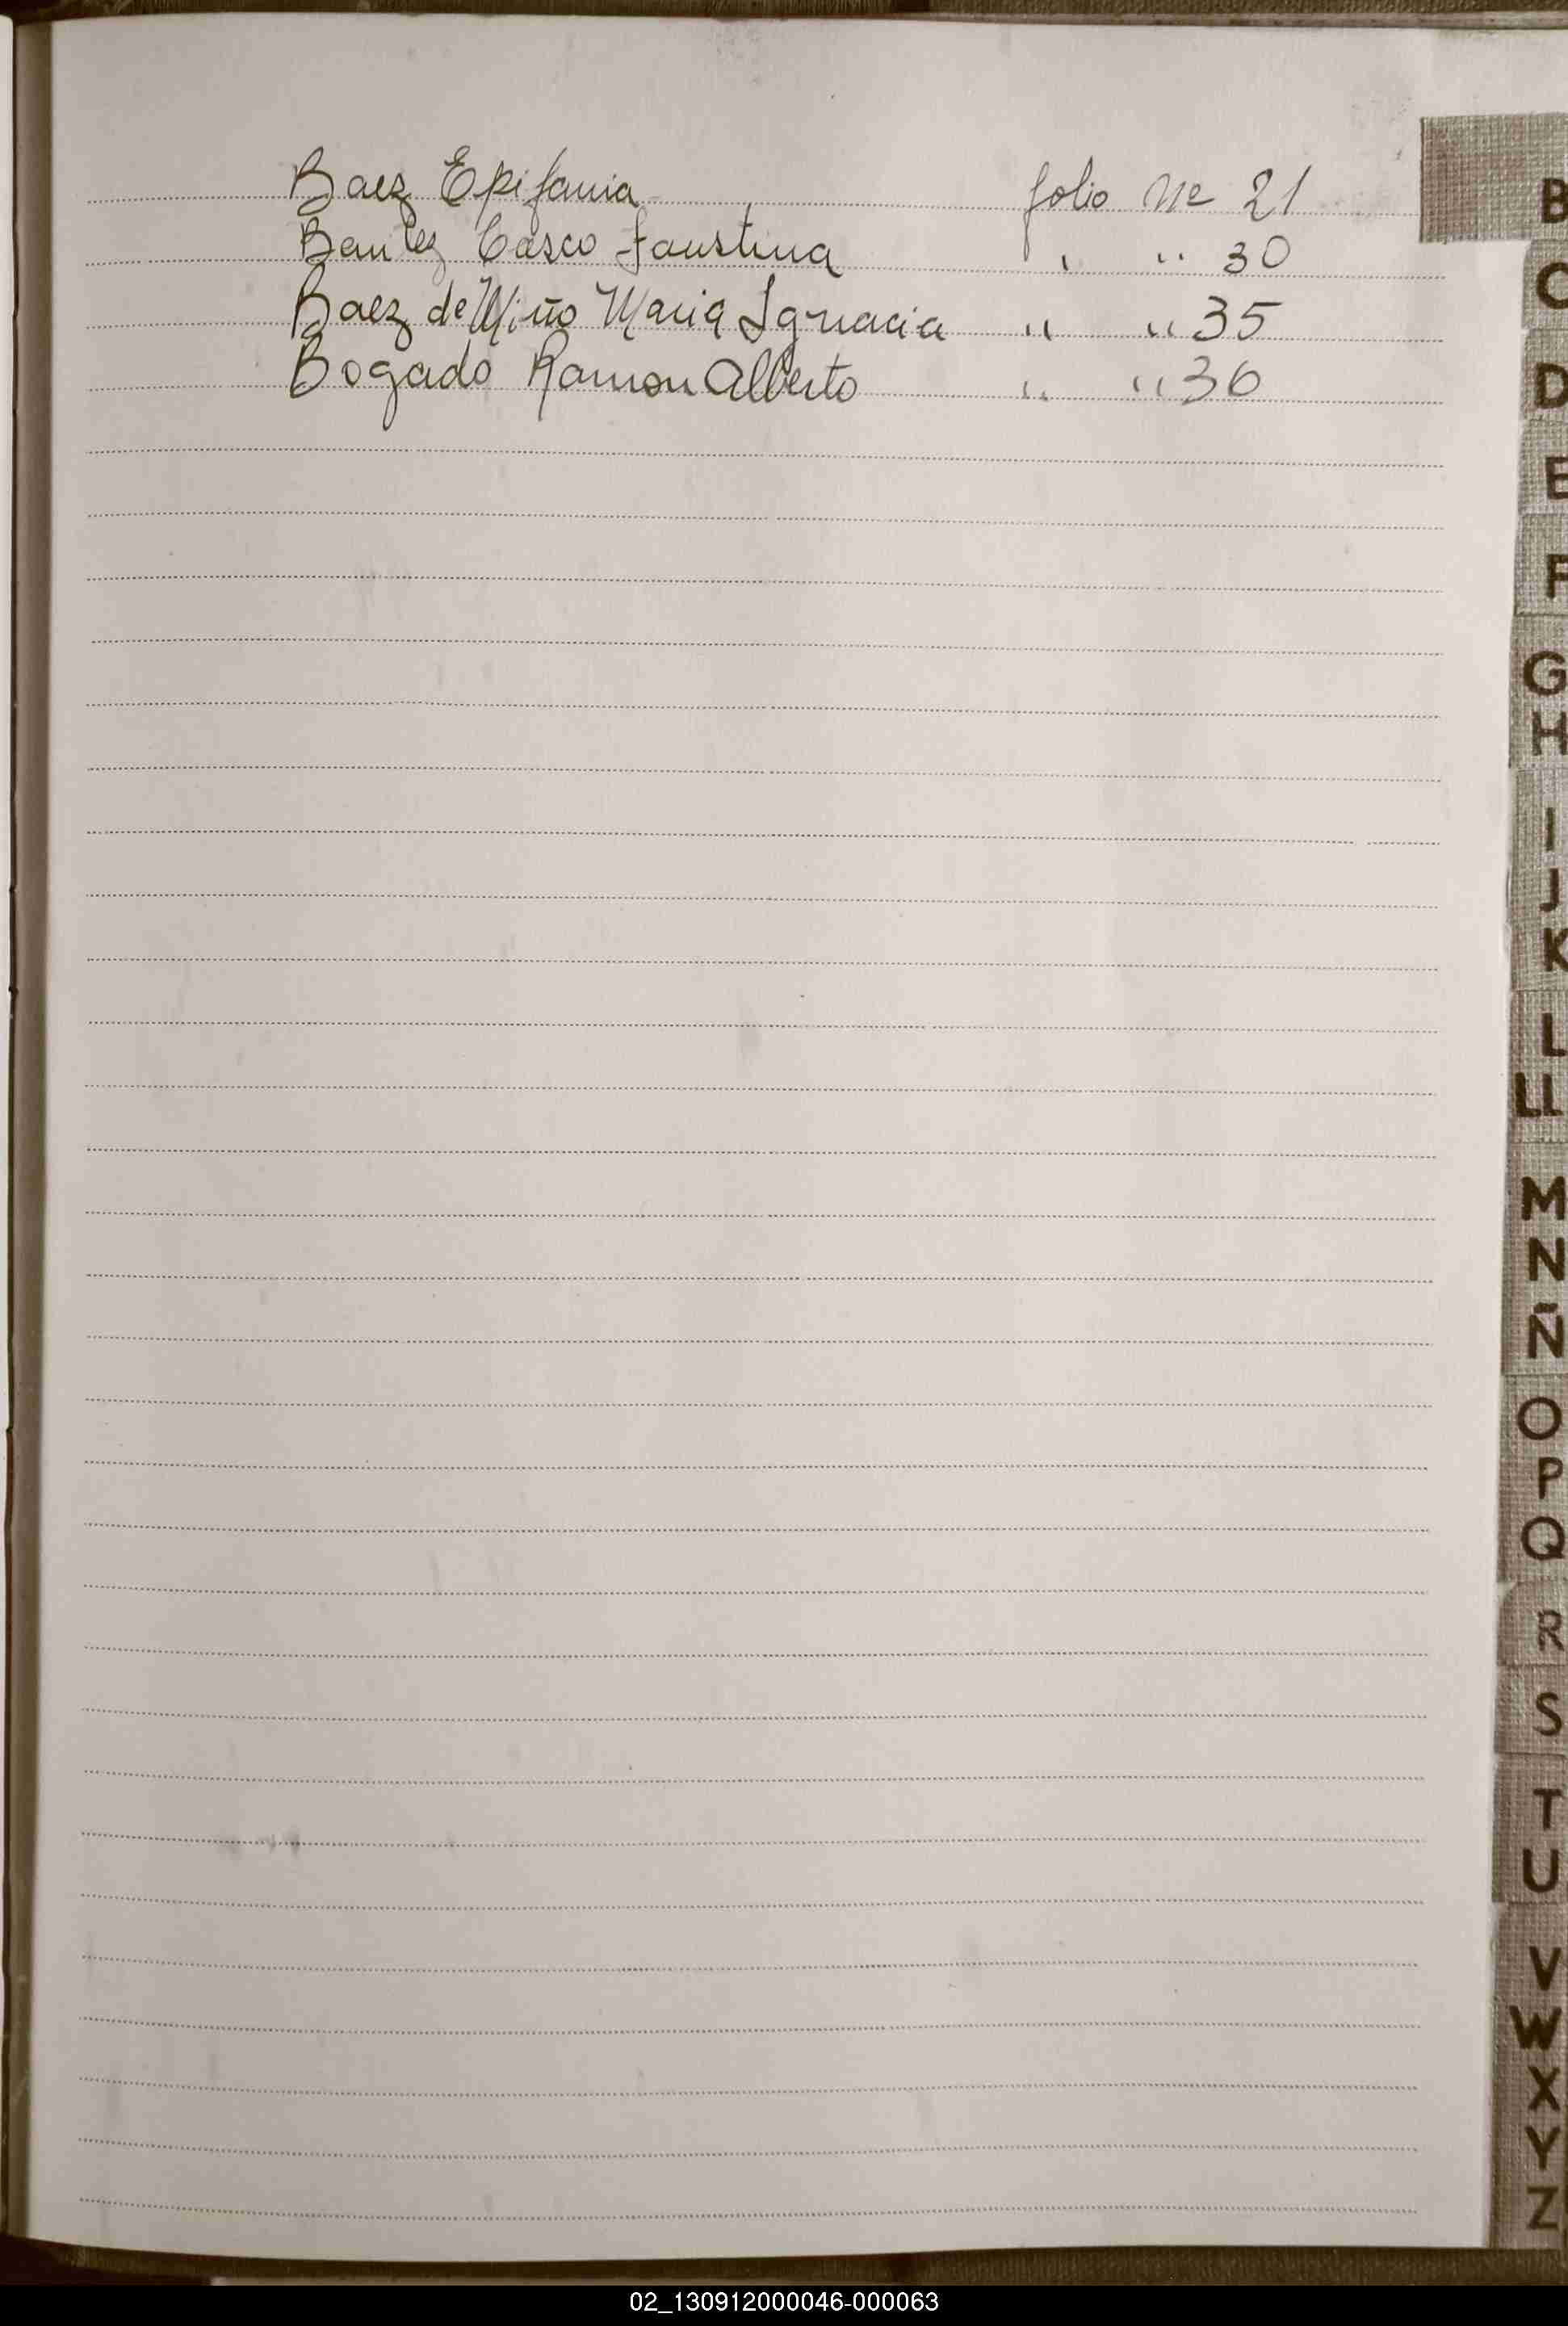 Baez Epifania folio Nº 21
Benitez Casco Faustina " " 30
Baez de Miño Maria Ignacia " " 35
Bogado Ramon Alberto " " 36
B
C
D
E
F
G
H
I
J
K
L
LL
M
N
Ñ
O
P
Q
R
S
T
U
V
W
X
Y
Z
02_130912000046-000063